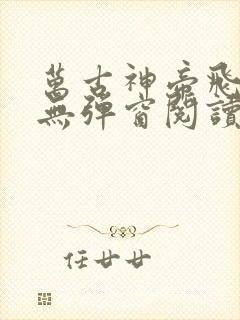 萬古神帝飛
無彈窗閱讀
任廿廿